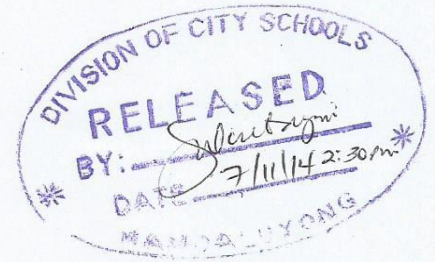 DIVISION OF CITY SCHOOLS
RELEASED
BY:
DATE 7/11/14 2:30pm
MANDALUYONG